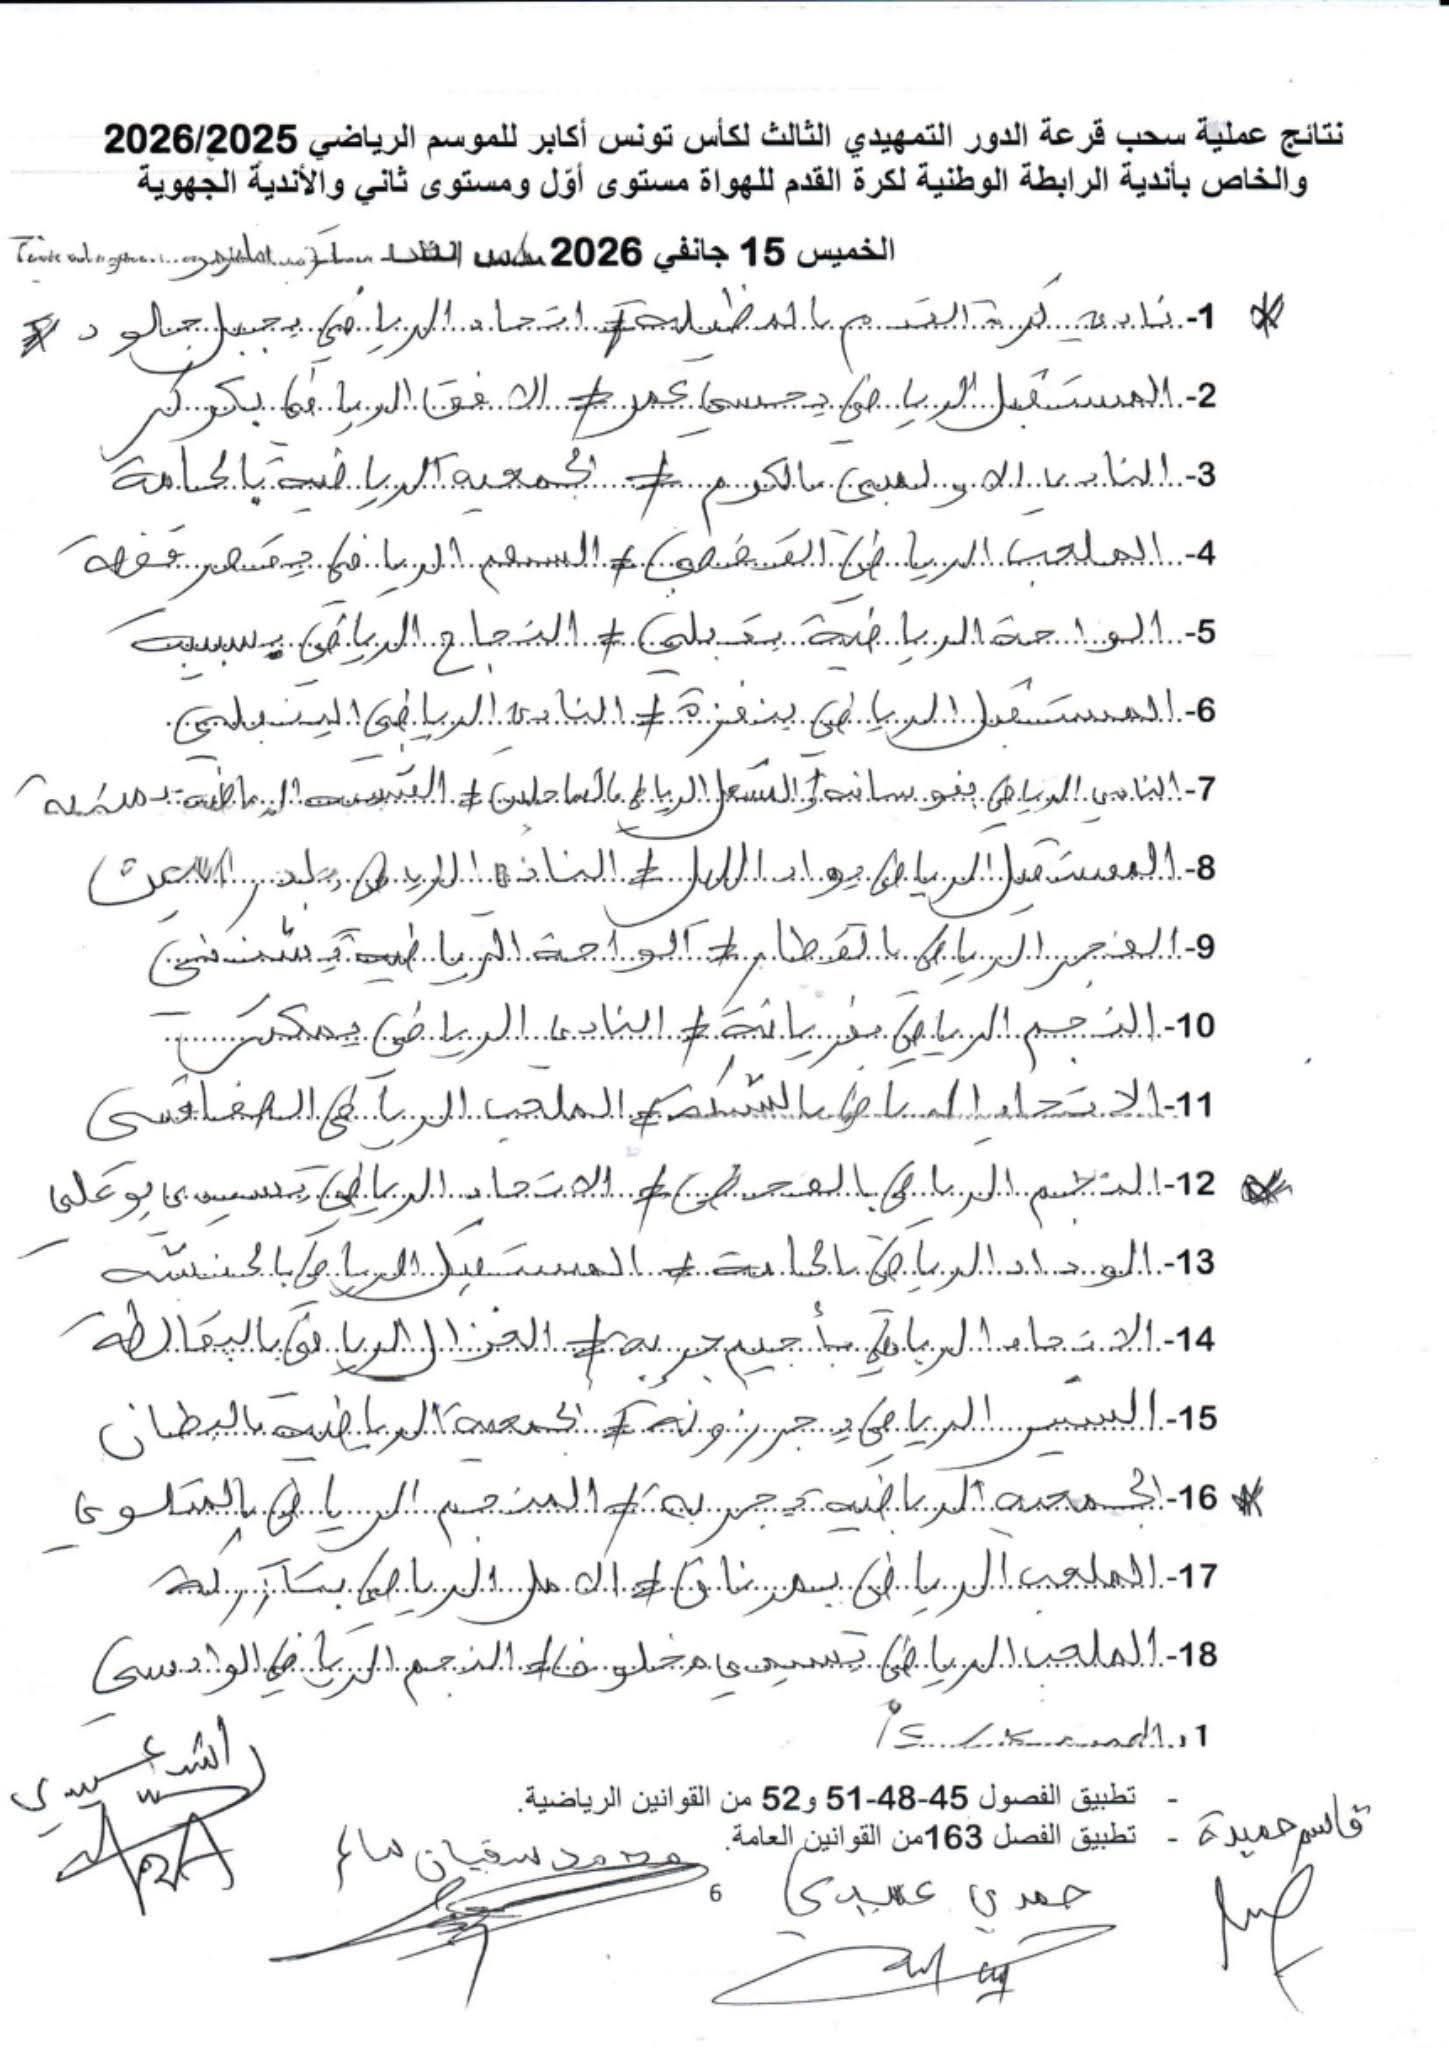 نتائج عملية سحب قرعة الدور التمهيدي الثالث لكأس تونس أكابر للموسم الرياضي 2026/2025
والخاص بأندية الرابطة الوطنية لكرة القدم للهواة مستوى أوّل ومستوى ثاني والأندية الجهوية
الخميس 15 جانفي 2026
1- نادي كرة القدم بالمظيلة # اتحاد الرياضي بجبل جلود
2- المستقبل الرياضي بحسي عمر # الافق الرياضي بكركر
3- النادي الاولمبي بالكرم # الجمعية الرياضية بالحامة
4- الملعب الرياضي القفصي # السهم الرياضي بقصر قفصة
5- الواحة الرياضية بقبلي # النجاح الرياضي بسبيبة
6- المستقبل الرياضي بنفزة # النادي الرياضي
7- النادي الرياضي بفوسانة / المشعل الرياضي بالساحلين # الرياضية
8- المستقبل الرياضي بواد الليل # الرياضي
9- الفجر الرياضي بالقطار # الواحة الرياضية بشنني
10- النجم الرياضي بفريانة # النادي الرياضي بمكثر
11- الاتحاد الرياضي # الملعب الرياضي الصفاقسي
12- النجم الرياضي بالفحص # الاتحاد الرياضي بسيدي بوعلي
13- الوداد الرياضي بالحامة # المستقبل الرياضي بالحنشة
14- الاتحاد الرياضي بأجيم جربة # الغزال الرياضي بالبقالطة
15- السير الرياضي بجرزونة # الجمعية الرياضية بالبطان
16- الجمعية الرياضية بجربة # المنجم الرياضي بالمتلوي
17- الملعب الرياضي بمرناق # الامل الرياضي
18- الملعب الرياضي بسيدي مخلوف # النجم الرياضي الوادسي
- تطبيق الفصول 45-48-51 و52 من القوانين الرياضية.
- تطبيق الفصل 163من القوانين العامة.
قاسم حميدة
محمد سفيان
حمدي عبيدي
6